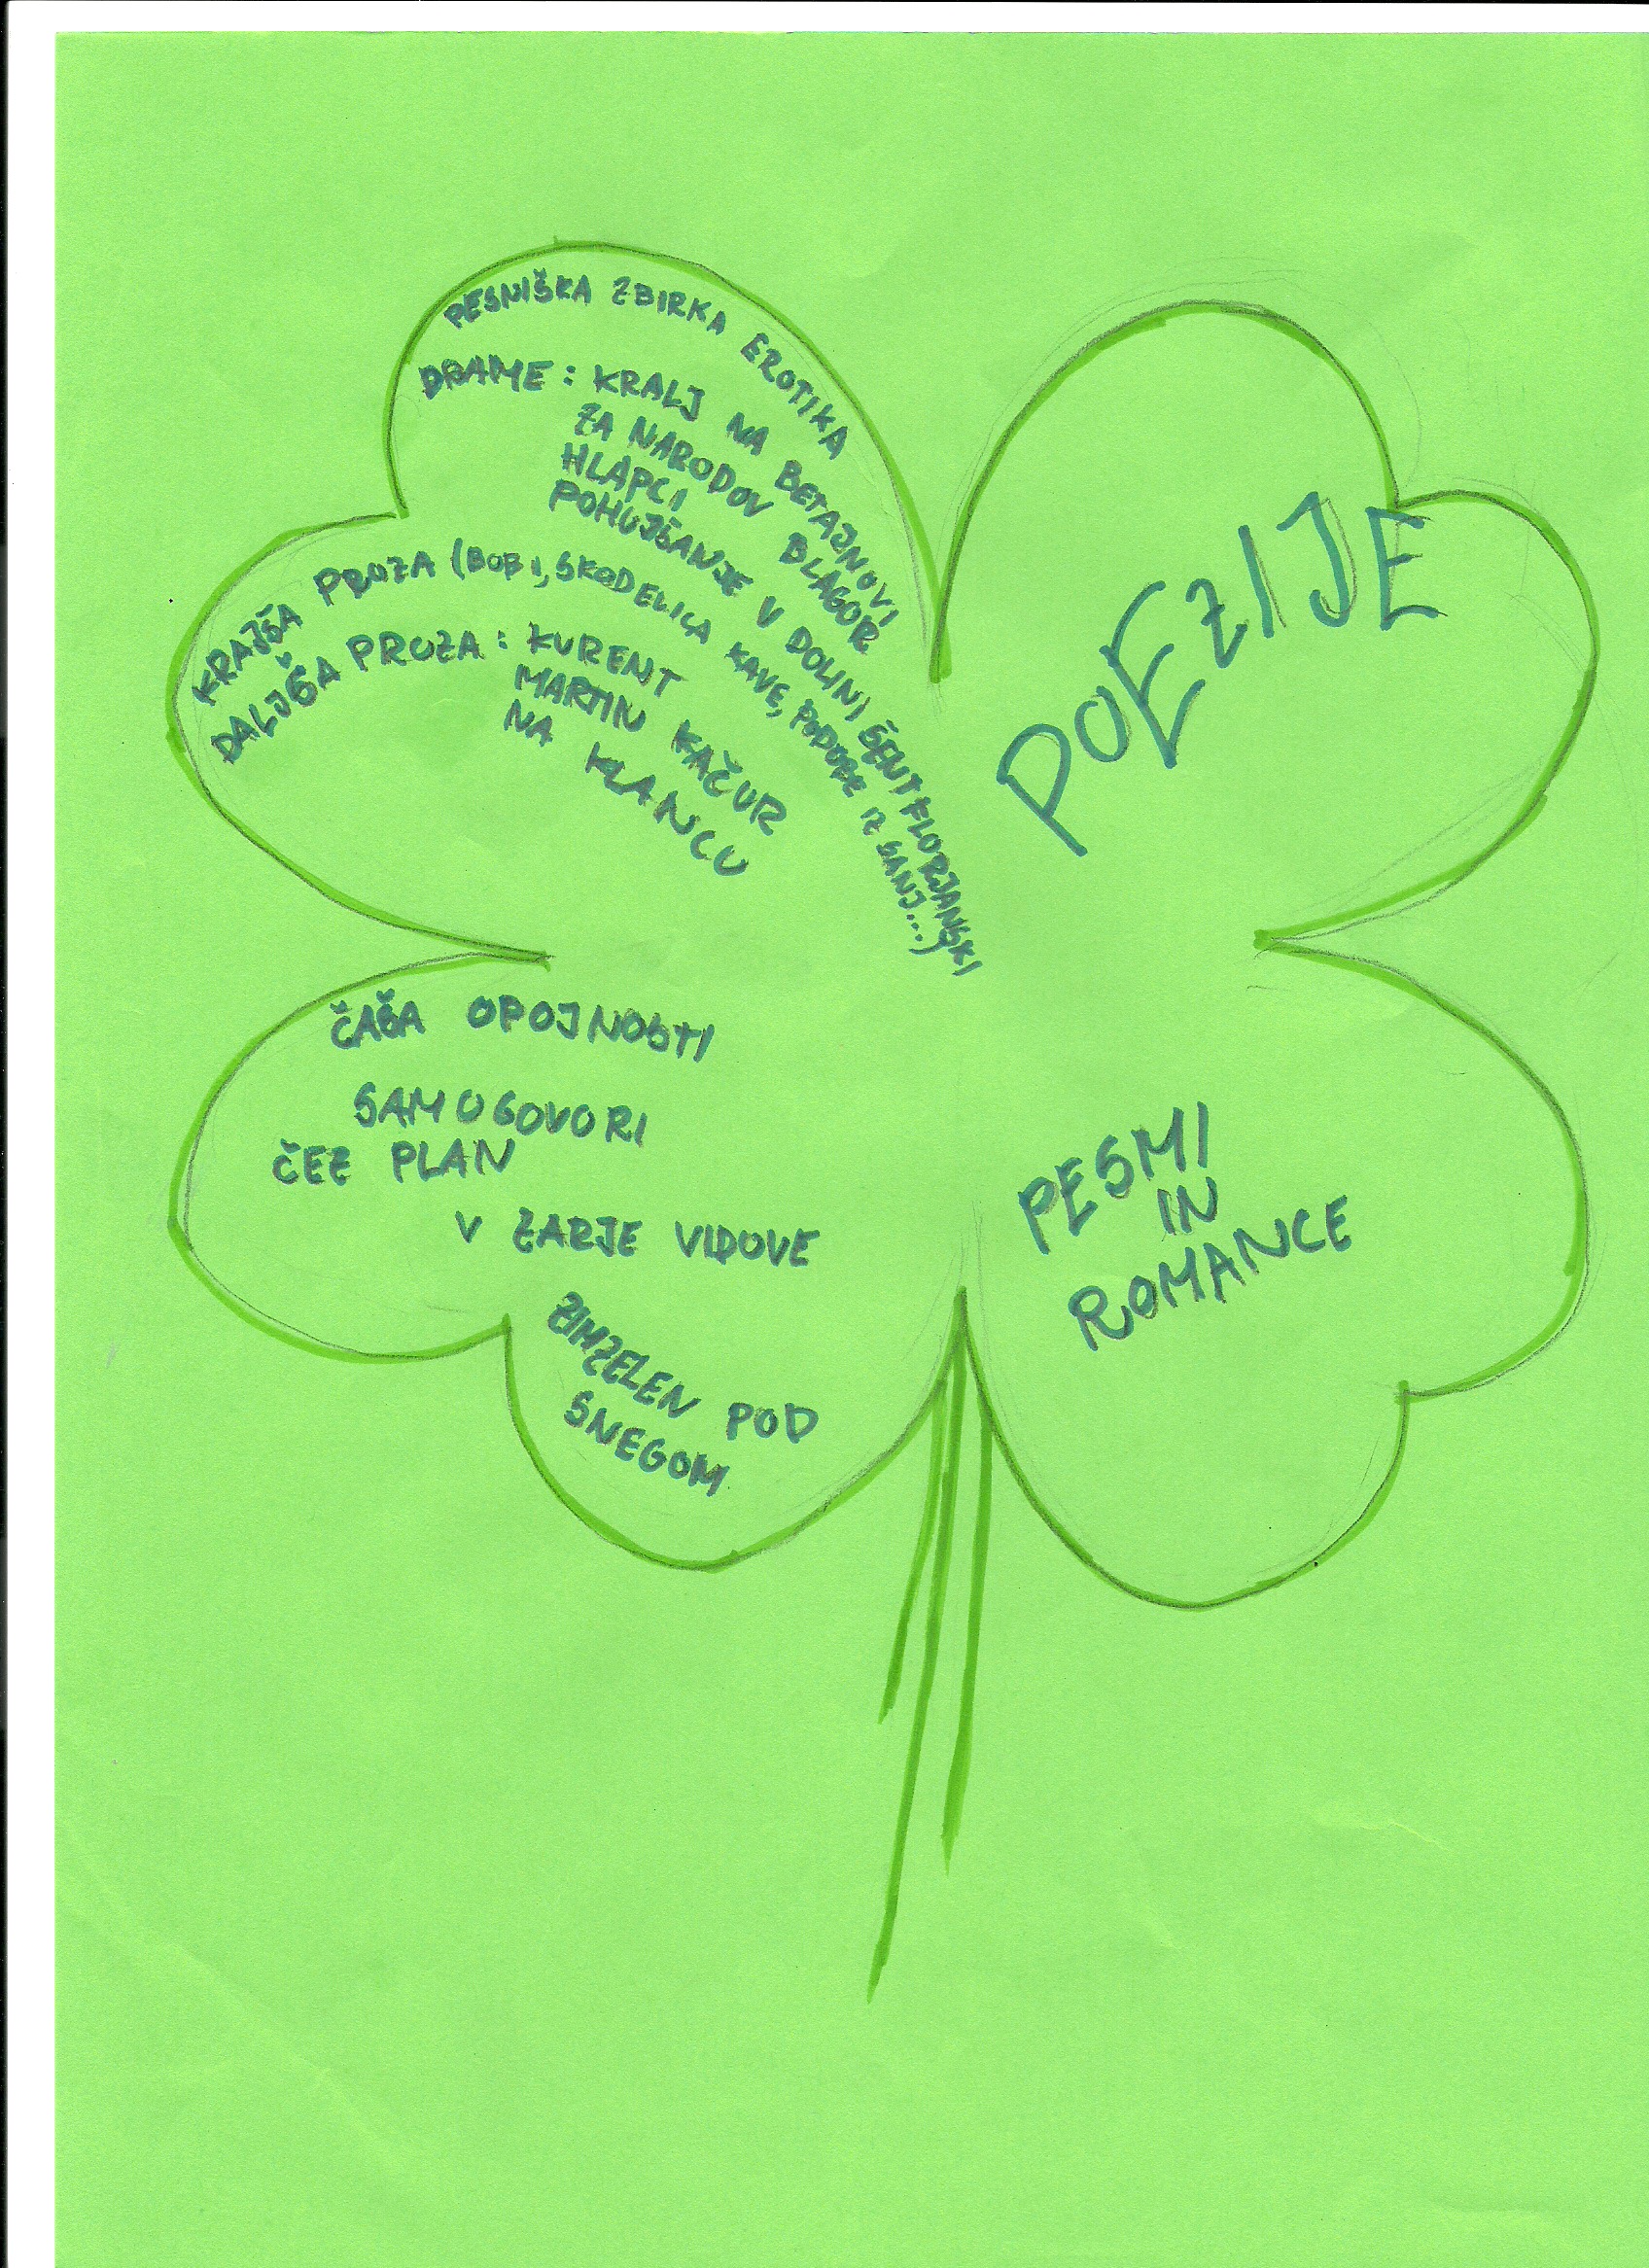 PESNIŠKA ZBIRKA EROTIKA
DRAME: KRALJ NA BETAJNOVI
ZA NARODOV BLAGOR
HLAPCI
POHUJŠANJE V DOLINI ŠENTFLORJANSKI
KRAJŠA PROZA (BOBI, SKODELICA KAVE, PODOBE IZ SANJ...)
DALJŠA PROZA: KURENT
MARTIN KAČUR
NA KLANCU
POEZIJE
ČAŠA OPOJNOSTI
SAMOGOVORI
ČEZ PLAN
V ZARJE VIDOVE
ZIMZELEN POD
SNEGOM
PESMI
IN
ROMANCE